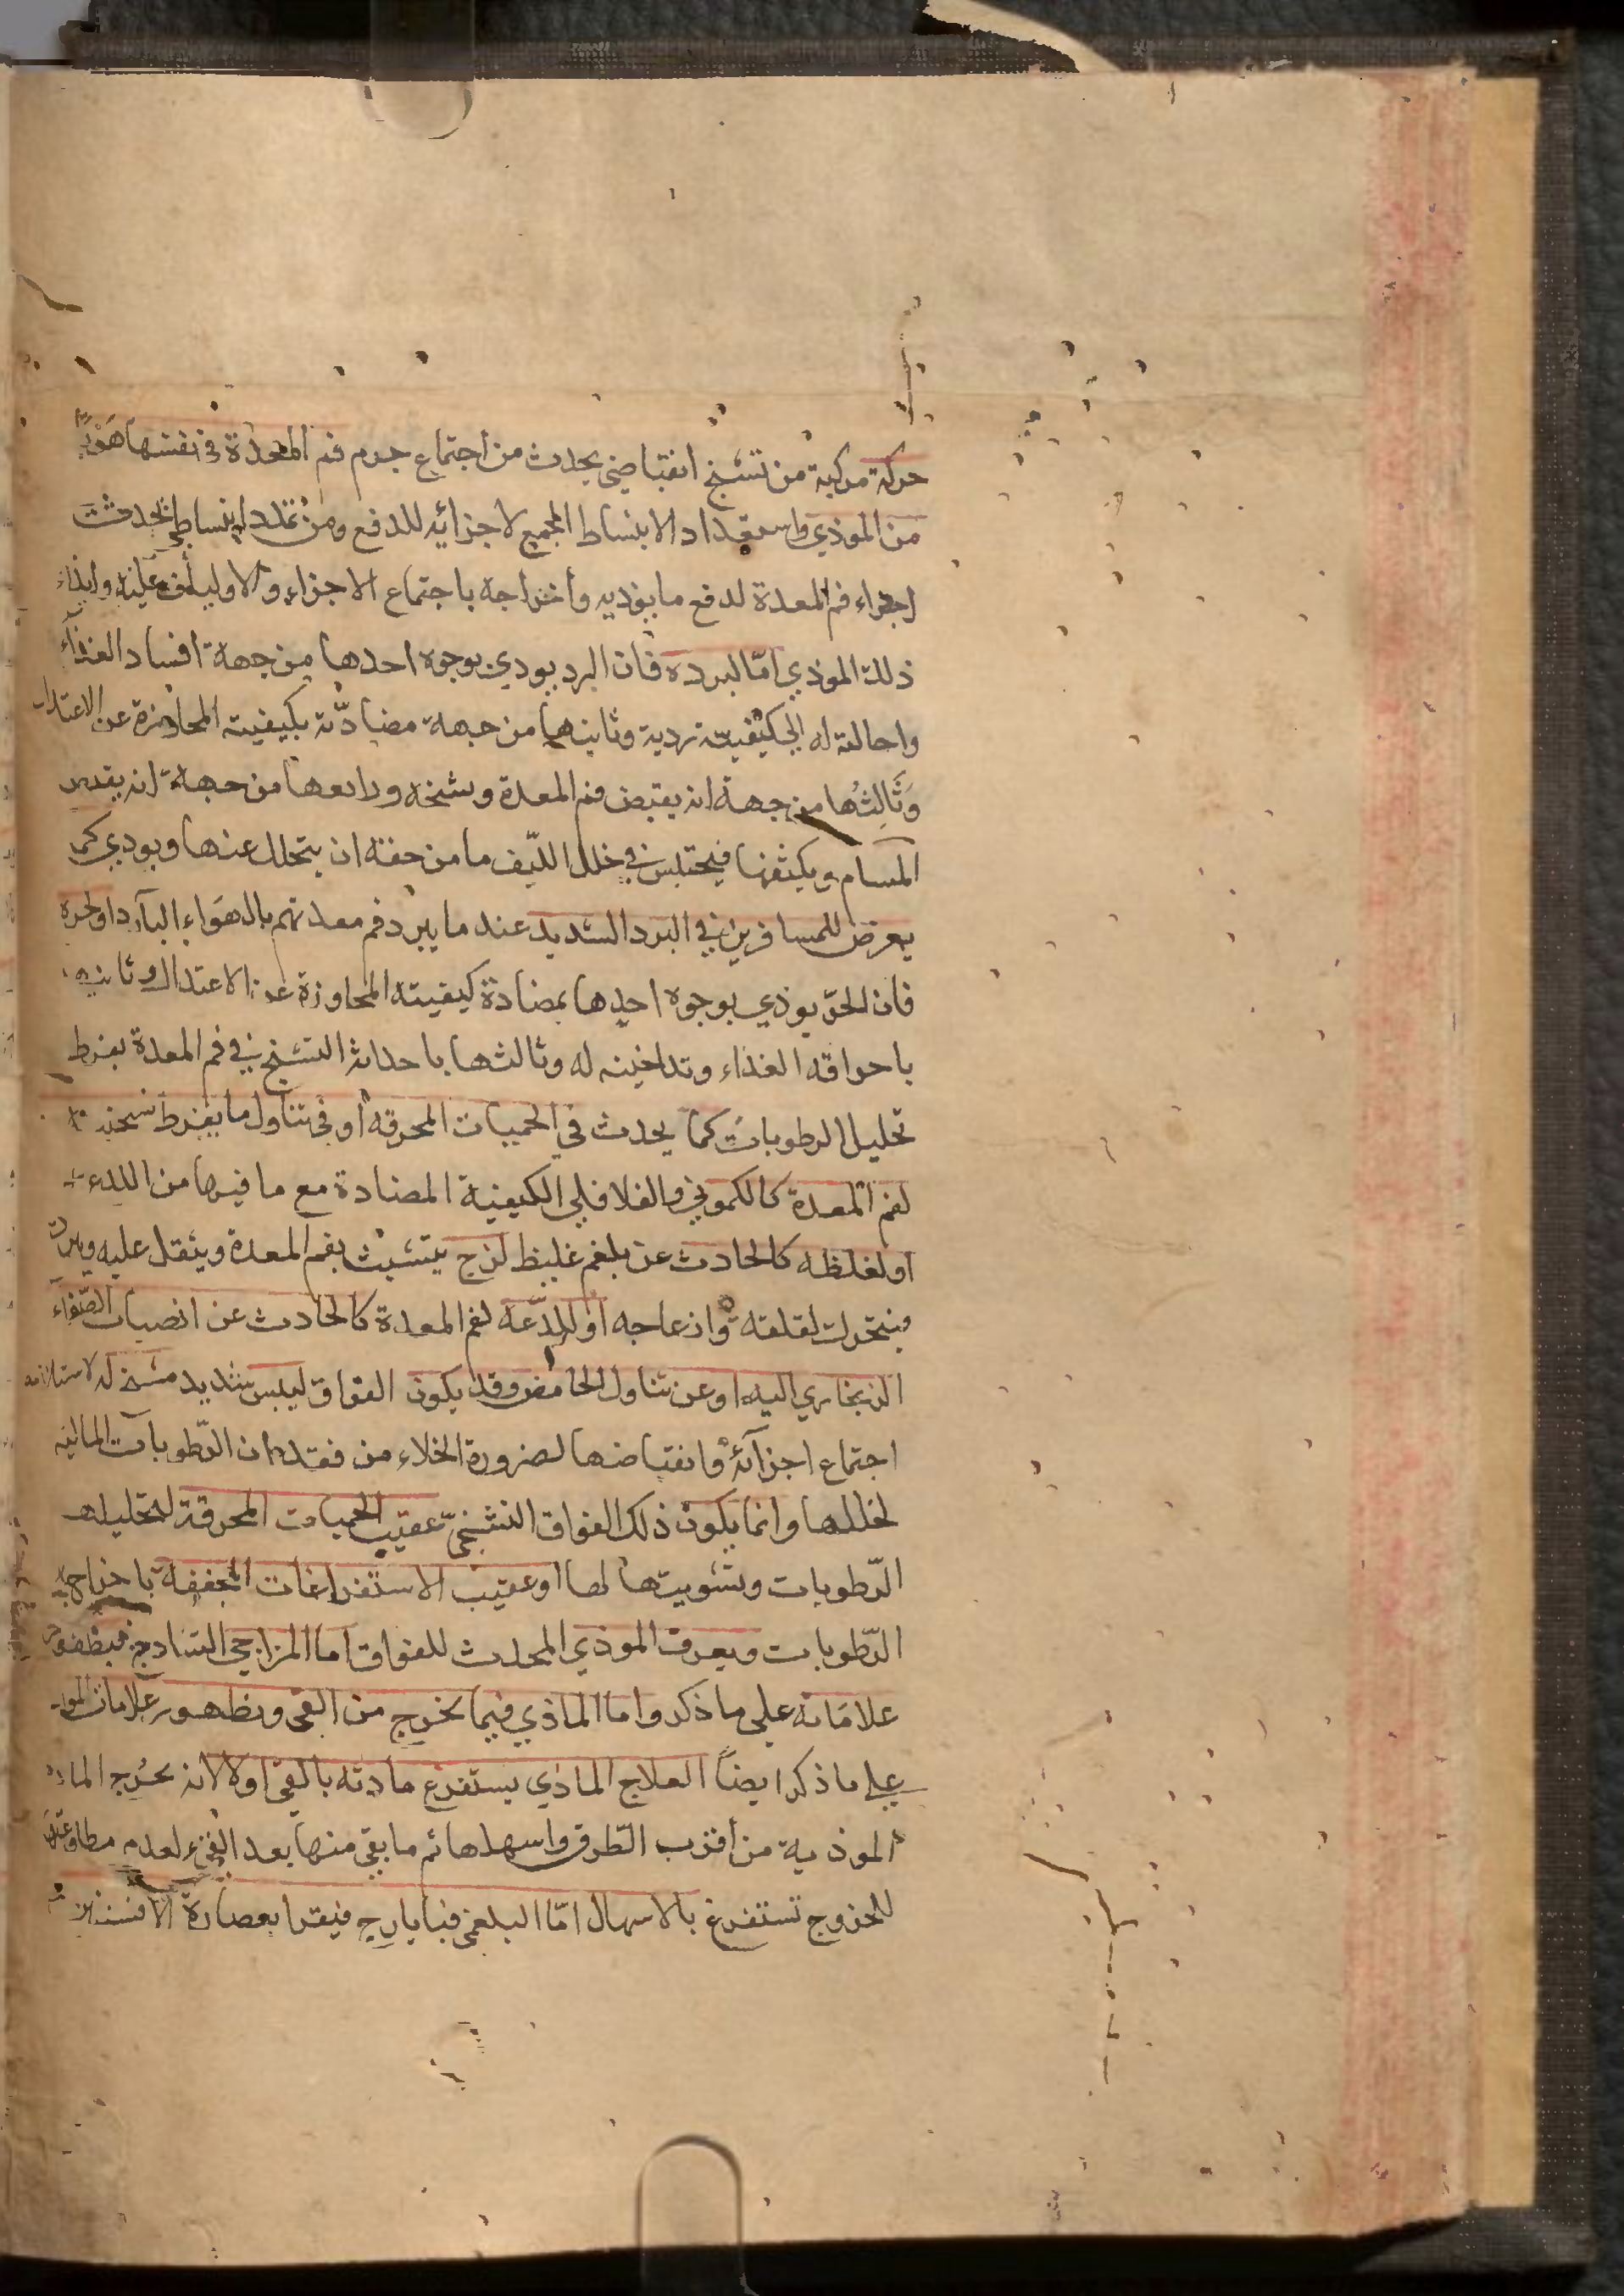 حركة مركبة من تشنج انقباضي يحدث من اجتماع جرم فم المعدة في نفسها هربًا
من الموذي واستعداد الانبساط المجمع لاجزائه للدفع ومن تمدد انبساطي يحدث
اجزاء فم المعدة لدفع ما يوذيه واخراجه باجتماع الاجزاء والاولياف عليه وايذاء
ذلك الموذي امّا لبرده فان البرد يودي بوجوه احدها من جهة افساد الغذآء
واحالته له الى كيفيته ردية وثانيها من جهة مضادّته بكيفيته المجاوزة عن الاعتدال
وَثَالِثُها من جهة انه يقبض فم المعدة ويشنجه ورابعها من جهة انه يقبض
المسام ويكثفها فيحتبس في خلل الليّف ما من حقه ان يتحلل عنها ويودي كما
يعرض للمسافرين في البرد الشديد عند ما يبرد فم معدتهم بالهَوَاء البآرد او لحره
فان الحرّ يوذي بوجوه احدها بمضادة كيفيته المجاوزة عن الاعتدال وثانيها
باحراقه الغذاء وتدخينه له وثالثها باحداث التشنج في فم المعدة بفرط
تحليل الرطوبات كما يحدث في الحميات المحرقه او في تناول ما يفرط تسخينه
لفم المعدة كالكموني والفلافلي الكيفية المضادة مع ما فيها من اللذع
او لغلظه كالحادث عن بلغم غليظ لزج يتشبث بفم المعدة ويثقل عليه ويبرد
فيتحرك لقلقه وانزعاجه او للذعه لفم المعدة كالحادث عن انصباب الصّفراء
الزنجاري اليه او عن تناول الحامض وقد يكون الفواق ليبس شديد مشنج له لاستلزامه
اجتماع اجزآئه وانقباضها لضرورة الخلاء من فقدان الرّطوبات المالئة
لخللها وانما يكون ذلك الفواق التشنجي عقيب الحميات المحرقة لتحليلها
الرّطوبات وتشويتها لها او عقيب الاستفراغات المجففة باخراجها
الرّطوبات ويعرف الموذي المحدث للفواق اما المزاجي الساذج فبظهور
علامَاته على ما ذكر واما الماذي فبما يخرج من القى وبظهور علامات المواد
على ما ذكر ايضاً العلاج الماذي يستفرغ مادته بالقى اولا لانه يخرج المادة
الموذية من أقرب الطّرق واسهلها ثم ما بقي منها بعد القىء لعدم مطاوعتها
للخروج تستفرغ بالاسهال امّا البلغمى فبايارج فيقرا بعصارة الافسنتين